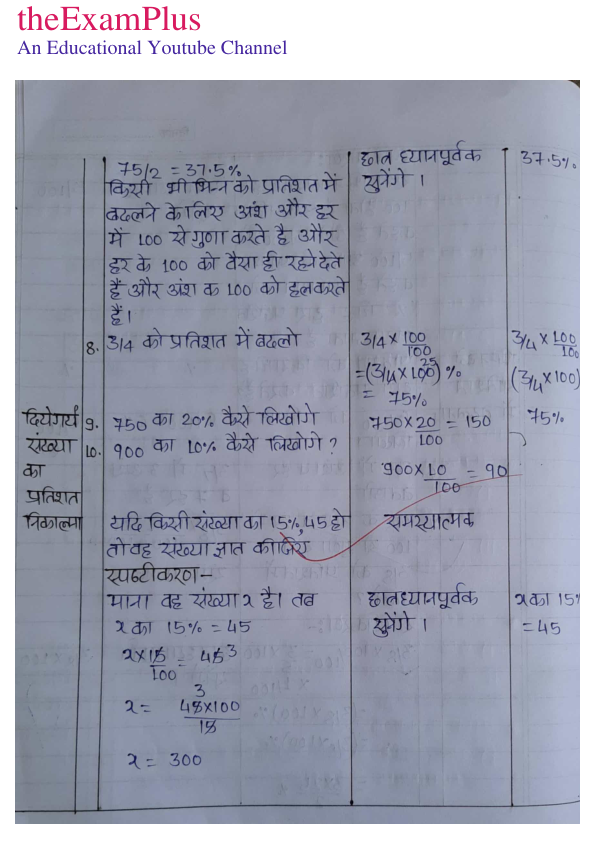 theExamPlus
An Educational Youtube Channel
75/2 = 37.5%
किसी भी भिन्न को प्रतिशत में
बदलने के लिए अंश और हर
में 100 से गुणा करते है और
हर के 100 को वैसा ही रहने देते
हैं और अंश क 100 को हल करते
हैं।
छात्र ध्यानपूर्वक
सुनेंगे ।
37.5%
8. 3/4 को प्रतिशत में बदलो
3/4 × 100/100
= (3/4 × 100) % 25
= 75%
3/4 × 100/100
(3/4 × 100)
75%
दियेगये
संख्या
का
प्रतिशत
निकालना
9. 750 का 20% कैसे लिखोगे
10. 900 का 10% कैसे लिखोगे ?
750 × 20/100 = 150
900 × 10/100 = 90
यदि किसी संख्या का 15%, 45 हो
तो वह संख्या ज्ञात कीजिए
समस्यात्मक
स्पष्टीकरण –
माना वह संख्या x है। तब
x का 15% = 45
x × 15/100 = 45 3
3
x = 45×100/15
x = 300
छात्र ध्यानपूर्वक
सुनेंगे ।
x का 15%
= 45